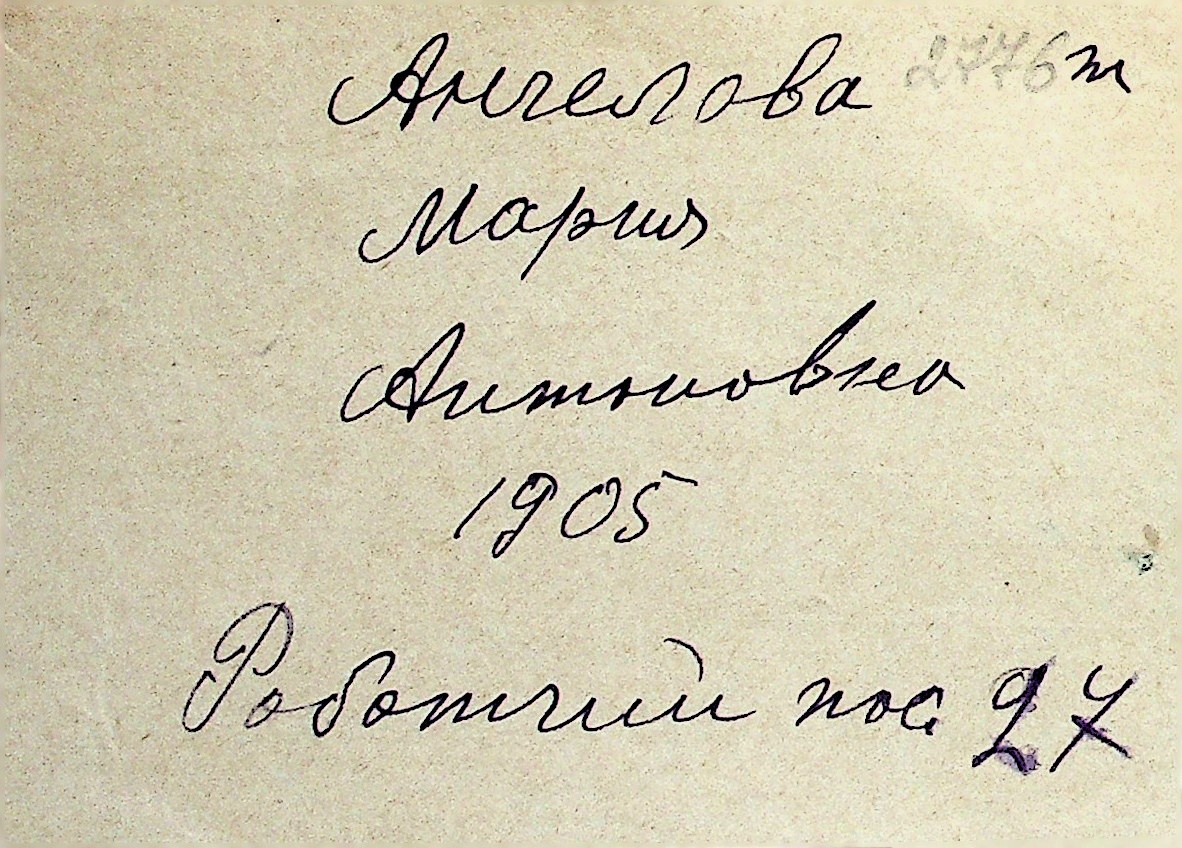 Ангелова 2776 т
Мария
Антоновна
1905
Работчий пос. 27